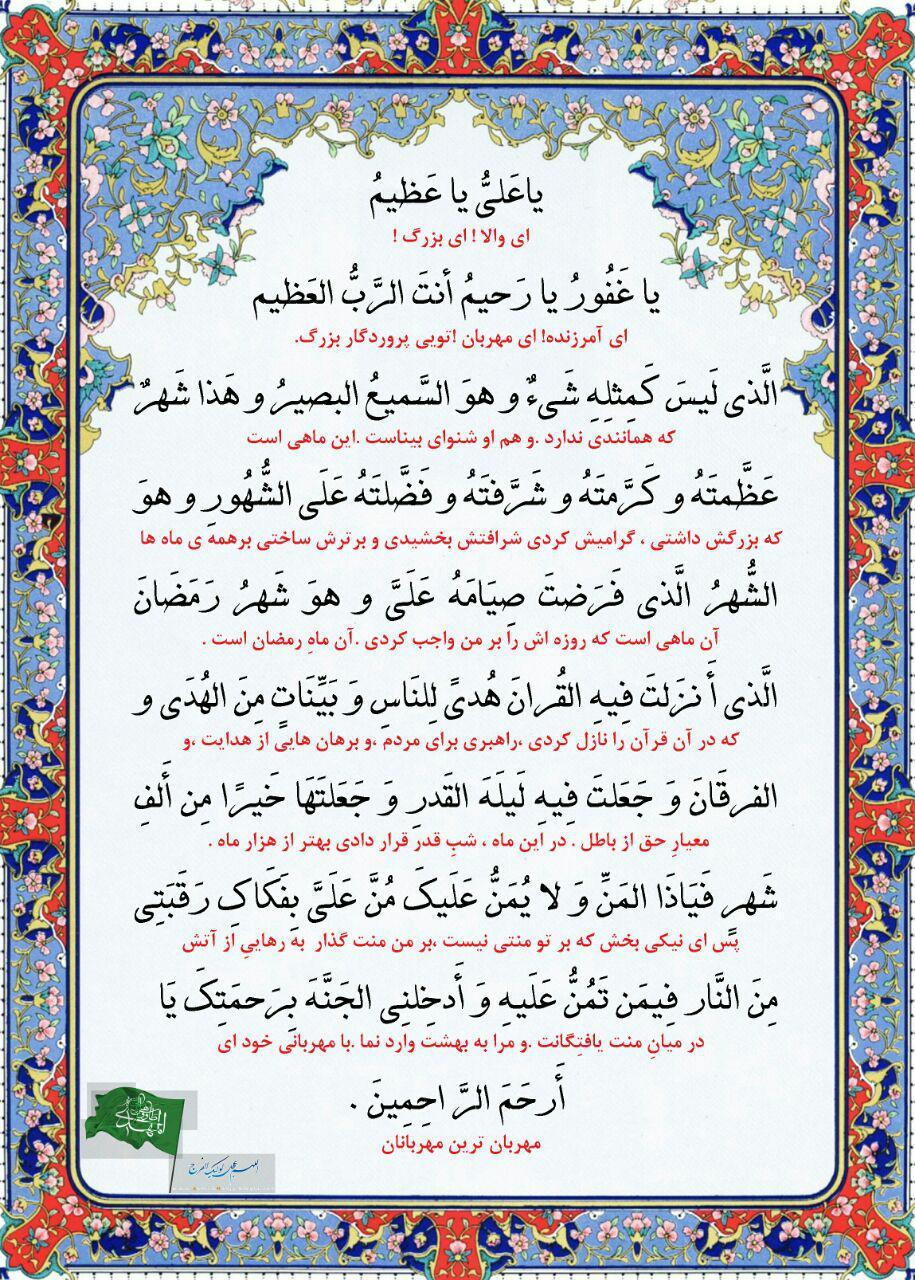 یاعَلیُّ یا عَظیمُ
ای والا ! ای بزرگ !
یا غَفُورُ یا رَحیمُ أنتَ الرَّبُّ العَظیم
ای آمرزنده! ای مهربان !تویی پروردگار بزرگ.
الَّذی لَیسَ کَمِثلِهِ شَیءٌ و هوَ السَّمیعُ البصیرُ و هَذا شَهرٌ
که همانندی ندارد .و هم او شنوای بیناست .این ماهی است
عَظَّمتَهُ و کَرَّمتَهُ و شَرَّفتَهُ و فَضَّلتَهُ عَلَی الشُّهُورِ و هوَ
که بزرگش داشتی ، گرامیش کردی شرافتش بخشیدی و برترش ساختی برهمه ی ماه ها
الشُّهرُ الَّذی فَرَضتَ صِیَامَهُ عَلَیَّ و هوَ شَهرُ رَمَضَانَ
آن ماهی است که روزه اش را بر من واجب کردی .آن ماهِ رمضان است .
الَّذی أَنزَلتَ فِیهِ القُرانَ هُدیً لِلنَاسِ وَ بَیِّنَاتٍ مِنَ الهُدَی و
که در آن قرآن را نازل کردی ،راهبری برای مردم ،و برهان هایی از هدایت ،و
الفرقَانَ وَ جَعَلتَ فِیهِ لَیلَهَ القَدرِ وَ جَعَلتَهَا خَیرًا مِن أَلفِ
معیارِ حق از باطل . در این ماه ، شبِ قدر قرار دادی بهتر از هزار ماه .
شَهرٍ فَیَاذَا المَنِّ وَ لا یُمَنُّ عَلَیکَ مُنَّ عَلَیَّ بِفَکَاکِ رَقَبَتِی
پس ای نیکی بخش که بر تو منتی نیست ،بر من منت گذار به رهاییِ از آتش
مِنَ النَّار فِیمَن تَمُنُّ عَلَیهِ وَ أَدخِلنِی الجَنَّهَ بِرَحمَتِکَ یَا
در میانِ منت یافتِگانت .و مرا به بهشت وارد نما .با مهربانی خود ای
أَرحَمَ الرَّاحِمِینَ .
مهربان ترین مهربانان
اللهم عجل لولیک الفرج